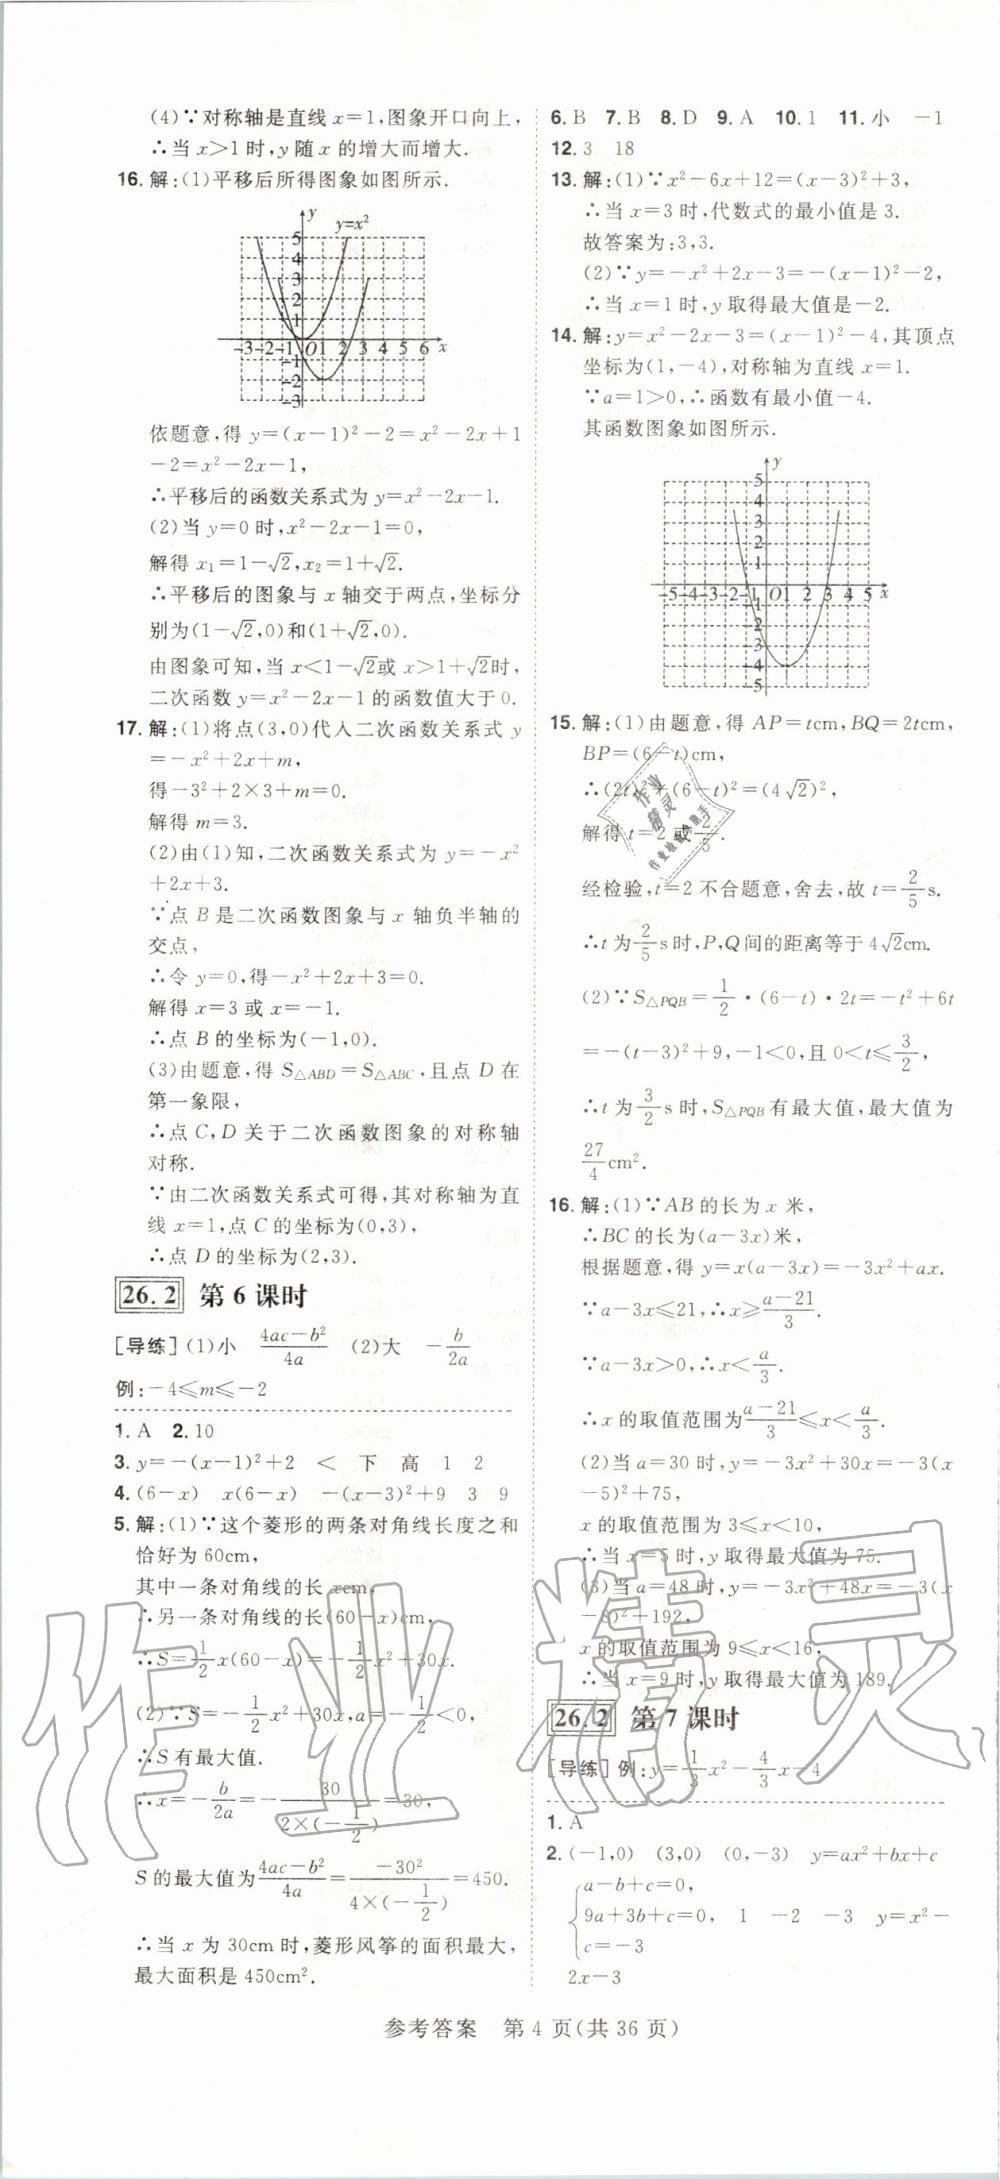 (4)∵对称轴是直线 x=1,图象开口向上,
∴当 x>1 时,y 随 x 的增大而增大.
16.解:(1)平移后所得图象如图所示.
y
y=x²
5
4
3
2
1
-3-2-1 O 1 2 3 4 5 6 x
-1
-2
-3
依题意,得 y=(x-1)²-2=x²-2x+1
-2=x²-2x-1,
∴平移后的函数关系式为 y=x²-2x-1.
(2)当 y=0 时,x²-2x-1=0,
解得 x₁=1-√2,x₂=1+√2.
∴平移后的图象与 x 轴交于两点,坐标分
别为(1-√2,0)和(1+√2,0).
由图象可知,当 x<1-√2或 x>1+√2时,
二次函数 y=x²-2x-1 的函数值大于 0.
17.解:(1)将点(3,0)代入二次函数关系式 y
=-x²+2x+m,
得-3²+2×3+m=0.
解得 m=3.
(2)由(1)知,二次函数关系式为 y=-x²
+2x+3.
∵点 B 是二次函数图象与 x 轴负半轴的
交点,
∴令 y=0,得-x²+2x+3=0.
解得 x=3 或 x=-1.
∴点 B 的坐标为(-1,0).
(3)由题意,得 S△ABD=S△ABC,且点 D 在
第一象限,
∴点 C,D 关于二次函数图象的对称轴
对称.
∵由二次函数关系式可得,其对称轴为直
线 x=1,点 C 的坐标为(0,3),
∴点 D 的坐标为(2,3).
26.2 第 6 课时
[导练](1)小 (4ac-b²)/4a (2)大 -b/2a
例:-4≤m≤-2
1.A 2.10
3.y=-(x-1)²+2 < 下 高 1 2
4.(6-x) x(6-x) -(x-3)²+9 3 9
5.解:(1)∵这个菱形的两条对角线长度之和
恰好为 60cm,
其中一条对角线的长 xcm,
∴另一条对角线的长(60-x)cm,
∴S=1/2x(60-x)=-1/2x²+30x.
(2)∵S=-1/2x²+30x,a=-1/2<0,
∴S 有最大值.
∴x=-b/2a=-30/(2×(-1/2))=30,
S 的最大值为(4ac-b²)/4a=-30²/(4×(-1/2))=450.
∴当 x 为 30cm 时,菱形风筝的面积最大,
最大面积是 450cm².
6.B 7.B 8.D 9.A 10.1 11.小 -1
12.3 18
13.解:(1)∵x²-6x+12=(x-3)²+3,
∴当 x=3 时,代数式的最小值是 3.
故答案为:3,3.
(2)∵y=-x²+2x-3=-(x-1)²-2,
∴当 x=1 时,y 取得最大值是-2.
14.解:y=x²-2x-3=(x-1)²-4,其顶点
坐标为(1,-4),对称轴为直线 x=1.
∵a=1>0,∴函数有最小值-4.
其函数图象如图所示.
y
5
4
3
2
1
-5-4-3-2-1 O 1 2 3 4 5 x
-1
-2
-3
-4
-5
15.解:(1)由题意,得 AP=tcm,BQ=2tcm,
BP=(6-t)cm,
∴(2t)²+(6-t)²=(4√2)²,
解得 t=2 或 2/5.
经检验,t=2 不合题意,舍去,故 t=2/5s.
∴t 为2/5s 时,P,Q 间的距离等于 4√2cm.
(2)∵S△PQB=1/2·(6-t)·2t=-t²+6t
=-(t-3)²+9,-1<0,且 0<t≤3/2,
∴t 为3/2s 时,S△PQB有最大值,最大值为
27/4cm².
16.解:(1)∵AB 的长为 x 米,
∴BC 的长为(a-3x)米,
根据题意,得 y=x(a-3x)=-3x²+ax.
∵a-3x≤21,∴x≥(a-21)/3.
∵a-3x>0,∴x<a/3.
∴x 的取值范围为(a-21)/3≤x<a/3.
(2)当 a=30 时,y=-3x²+30x=-3(x
-5)²+75,
x 的取值范围为 3≤x<10,
∴当 x=5 时,y 取得最大值为 75.
(3)当 a=48 时,y=-3x²+48x=-3(x
-8)²+192,
x 的取值范围为 9≤x<16,
∴当 x=9 时,y 取得最大值为 189.
26.2 第 7 课时
[导练]例:y=1/3x²-4/3x-4
1.A
2.(-1,0) (3,0) (0,-3) y=ax²+bx+c
a-b+c=0,
9a+3b+c=0, 1 -2 -3 y=x²-
c=-3
2x-3
参考答案 第 4 页(共 36 页)
作业精灵
作业
精灵